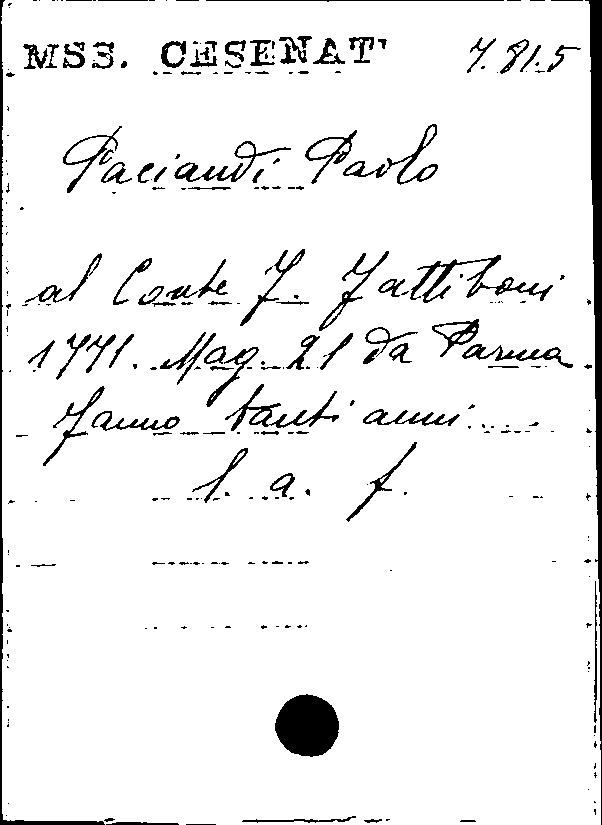 MSS. CESENAT' 7.81.5
Paciaudi Paolo
al Conte F. Fattiboni
1771. Mag. 21 da Parma
Fanno tanti anni....
l. a. f.